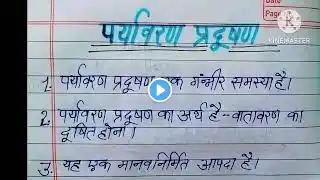 पर्यावरण प्रदूषण
Date
Page
KINEMASTER
1. पर्यावरण प्रदूषण एक गंभीर समस्या है।
2. पर्यावरण प्रदूषण का अर्थ है - वातावरण का
दूषित होना।
3. यह एक मानव निर्मित आपदा है।